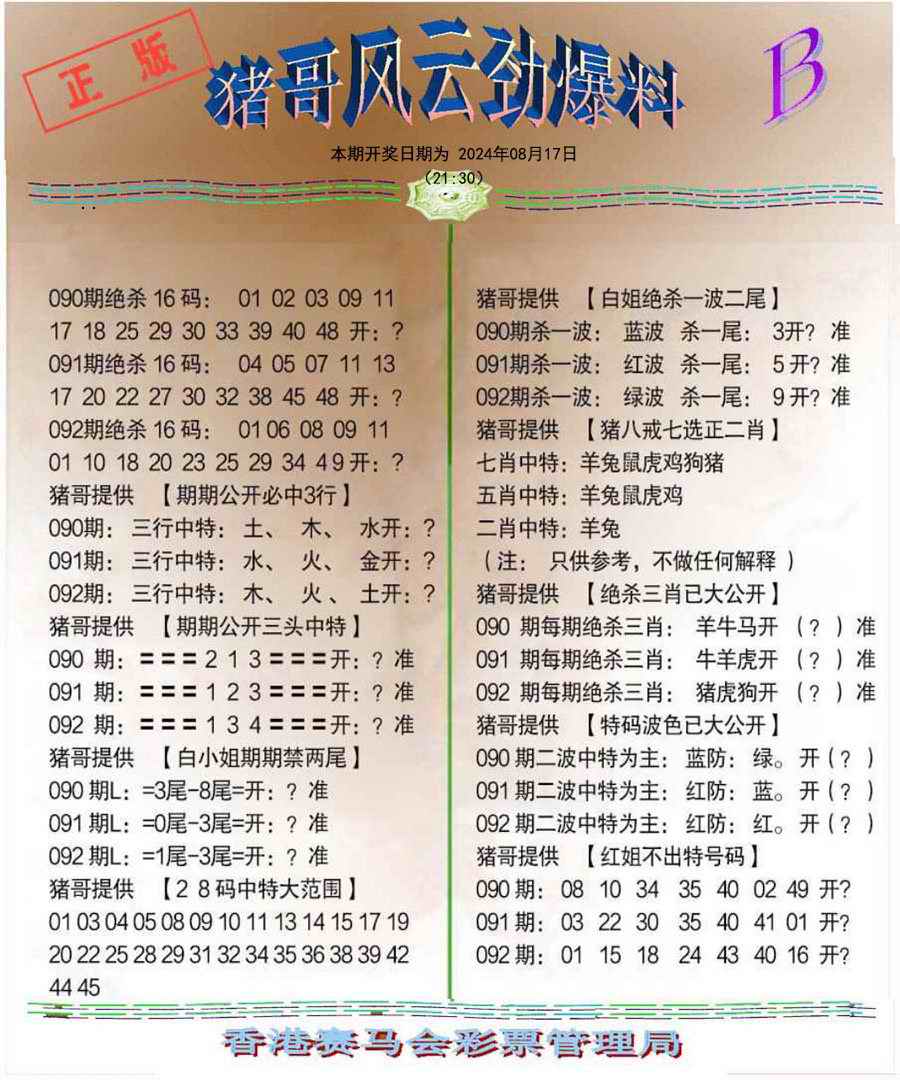 正版
猪哥风云劲爆料
B
本期开奖日期为 2024年08月17日
(21:30)
090期绝杀 16 码： 01 02 03 09 11
17 18 25 29 30 33 39 40 48 开：?
091期绝杀 16 码： 04 05 07 11 13
17 20 22 27 30 32 38 45 48 开：?
092期绝杀 16 码： 01 06 08 09 11
01 10 18 20 23 25 29 34 4 9 开：?
猪哥提供 【期期公开必中3行】
090期： 三行中特： 土、 木、 水开：?
091期： 三行中特： 水、 火、 金开：?
092期： 三行中特： 木、 火、 土开：?
猪哥提供 【期期公开三头中特】
090 期：===2 1 3===开：? 准
091 期：===1 2 3===开：? 准
092 期：===1 3 4===开：? 准
猪哥提供 【白小姐期期禁两尾】
090 期L：=3尾-8尾=开：? 准
091 期L：=0尾-3尾=开：? 准
092 期L：=1尾-3尾=开：? 准
猪哥提供 【2 8 码中特大范围】
01 03 04 05 08 09 10 11 13 14 15 17 19
20 22 25 28 29 31 32 34 35 36 38 39 42
44 45
猪哥提供 【白姐绝杀一波二尾】
090期杀一波： 蓝波 杀一尾： 3开? 准
091期杀一波： 红波 杀一尾： 5 开? 准
092期杀一波： 绿波 杀一尾： 9 开? 准
猪哥提供 【猪八戒七选正二肖】
七肖中特：羊兔鼠虎鸡狗猪
五肖中特：羊兔鼠虎鸡
二肖中特：羊兔
（注： 只供参考，不做任何解释 ）
猪哥提供 【绝杀三肖已大公开】
090 期每期绝杀三肖： 羊牛马开 （? ）准
091 期每期绝杀三肖： 牛羊虎开 （? ）准
092 期每期绝杀三肖： 猪虎狗开 （? ）准
猪哥提供 【特码波色已大公开】
090 期二波中特为主： 蓝防： 绿。 开（? ）
091 期二波中特为主： 红防： 蓝。 开（? ）
092 期二波中特为主： 红防： 红。 开（? ）
猪哥提供 【红姐不出特号码】
090 期： 08 10 34 35 40 02 49 开?
091 期： 03 22 30 35 40 41 01 开?
092 期： 01 15 18 24 43 40 16 开?
香港赛马会彩票管理局